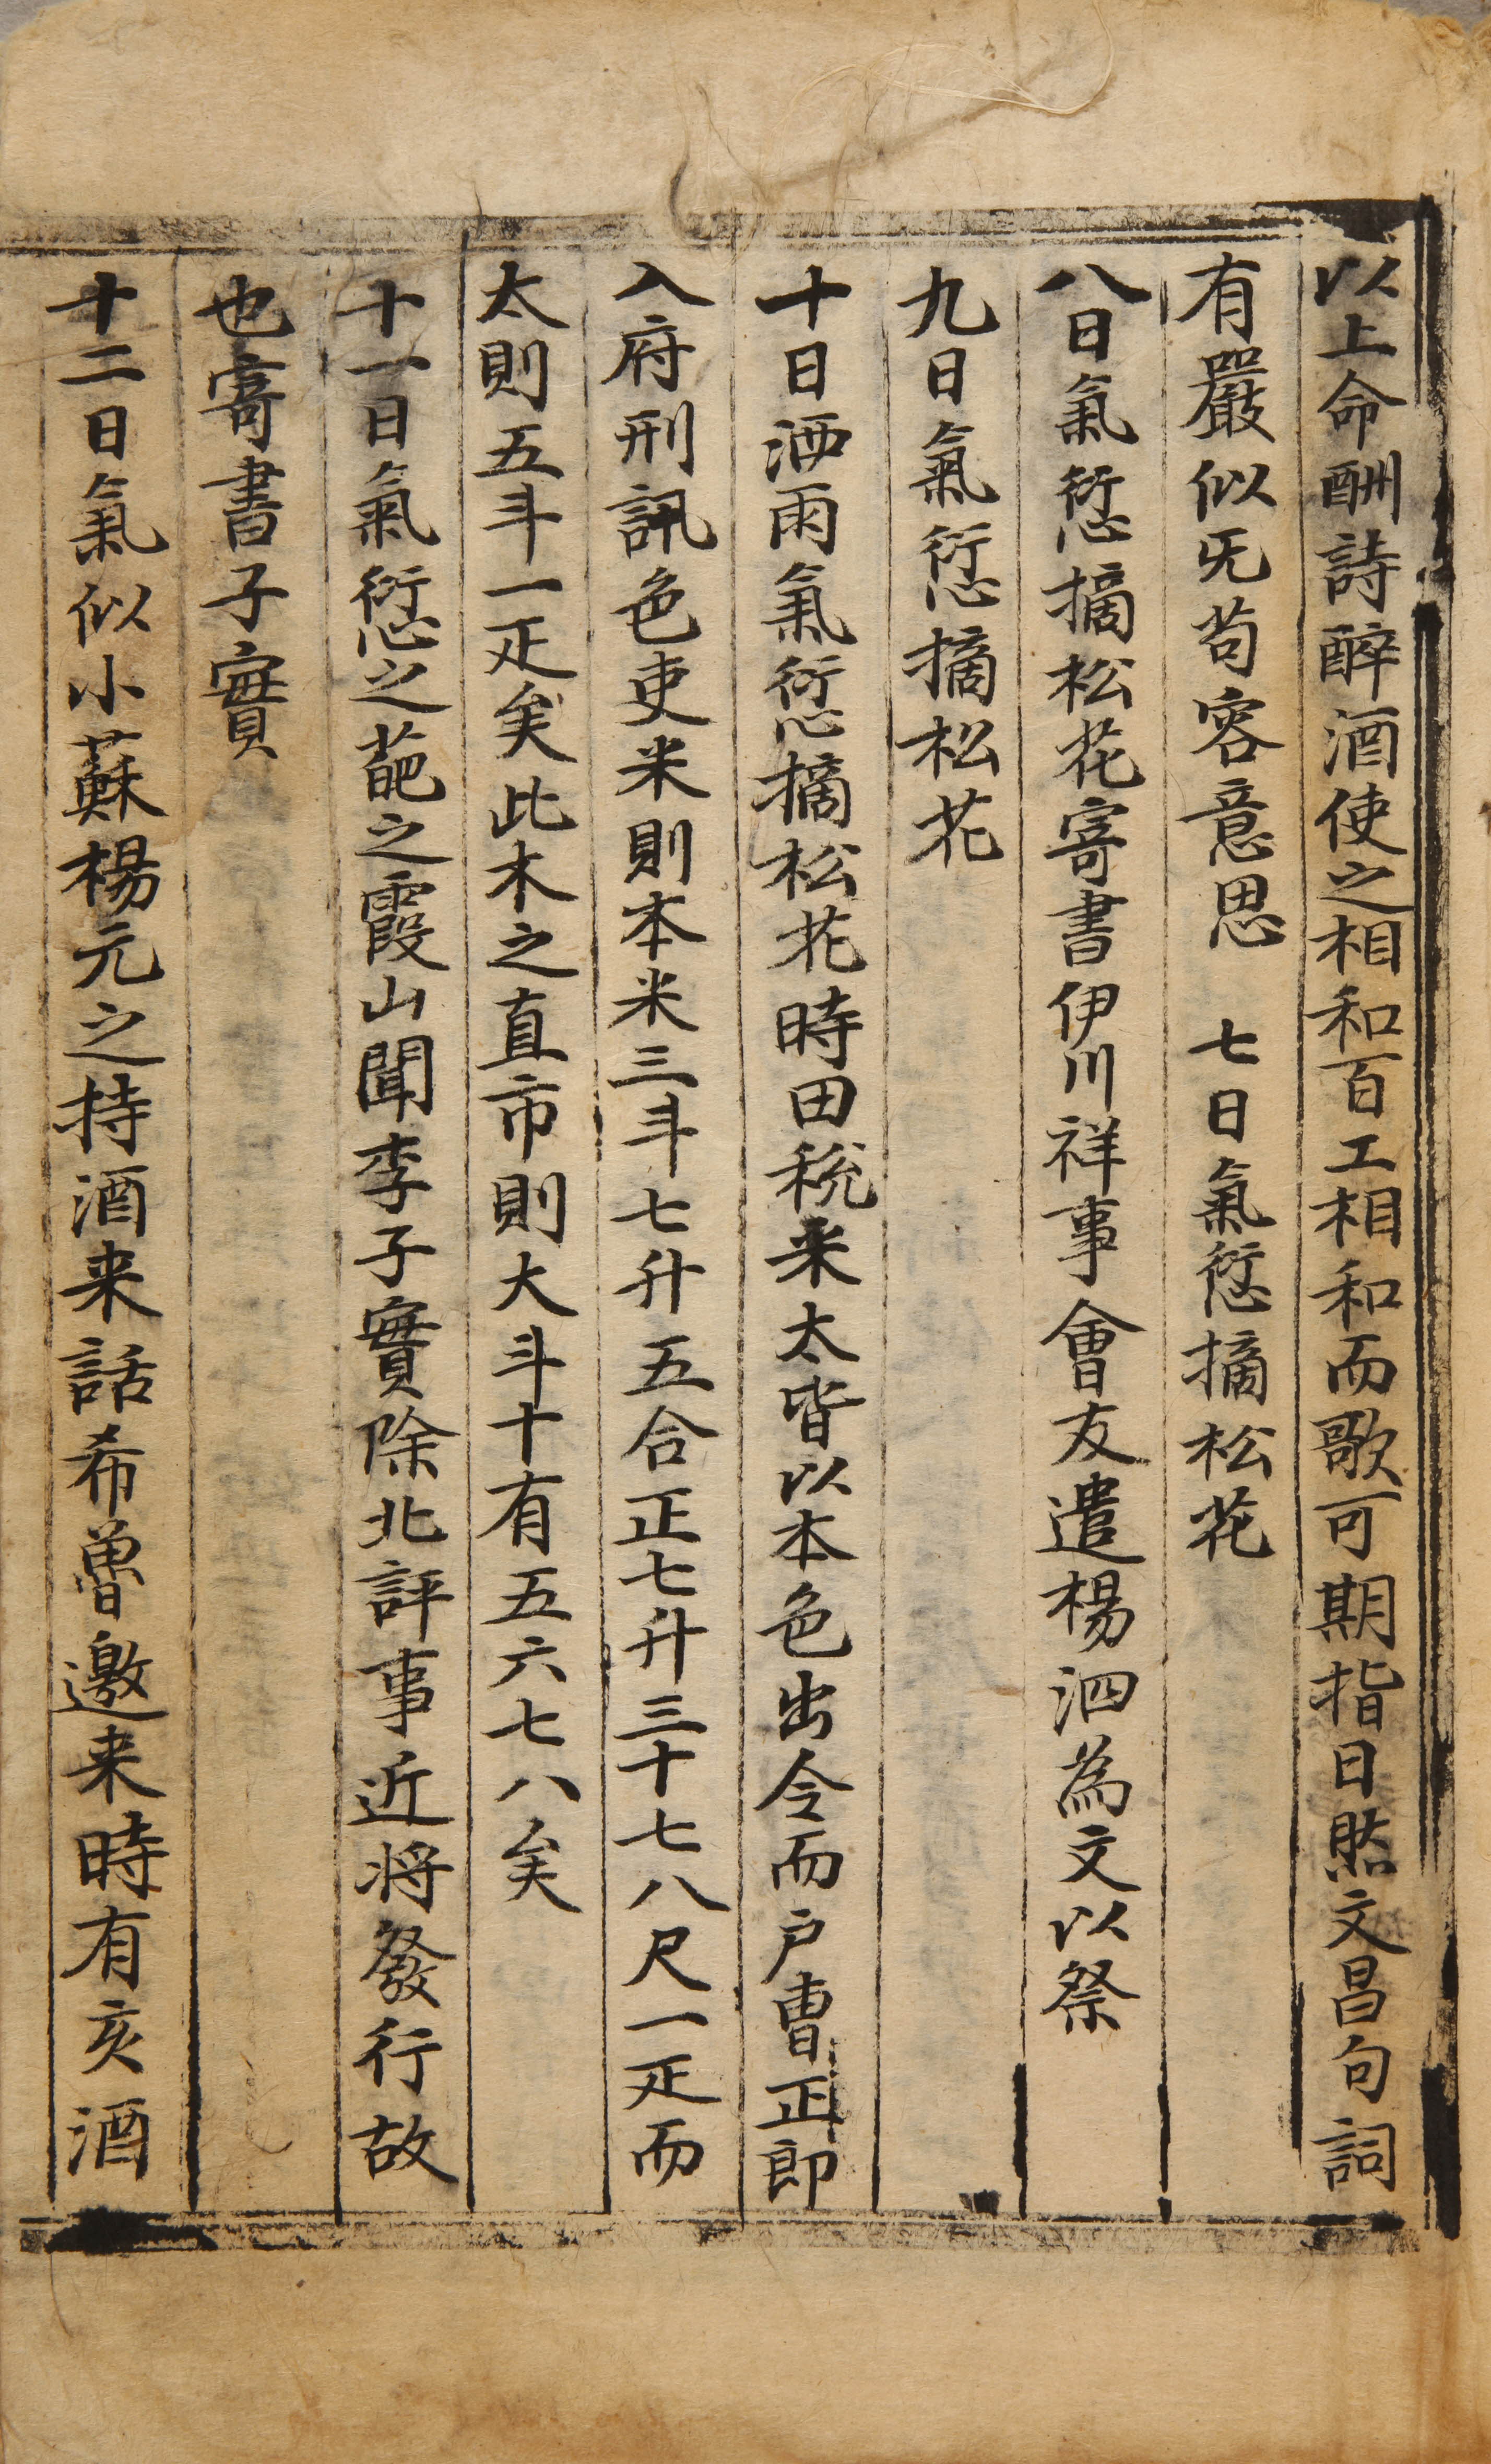 以上命酬詩醉酒使之相和百工相和而歌可期指日然文昌句詞
有嚴似旡苟容意思　七日氣愆摘松花
八日氣愆摘松花寄書伊川祥事會友遣楊泗為文以祭
九日氣愆摘松花
十日洒雨氣愆摘松花時田稅米太皆以本色出令而戶曺正郎
入府刑訊色吏米則本米三斗七升五合正七升三十七八尺一疋而
太則五斗一疋矣此木之直市則大斗十有五六七八矣
十一日氣愆之葩之霞山聞李子實除北評事近将發行故
也寄書子實
十二日氣似小蘇楊元之持酒来話希曾邀来時有亥酒